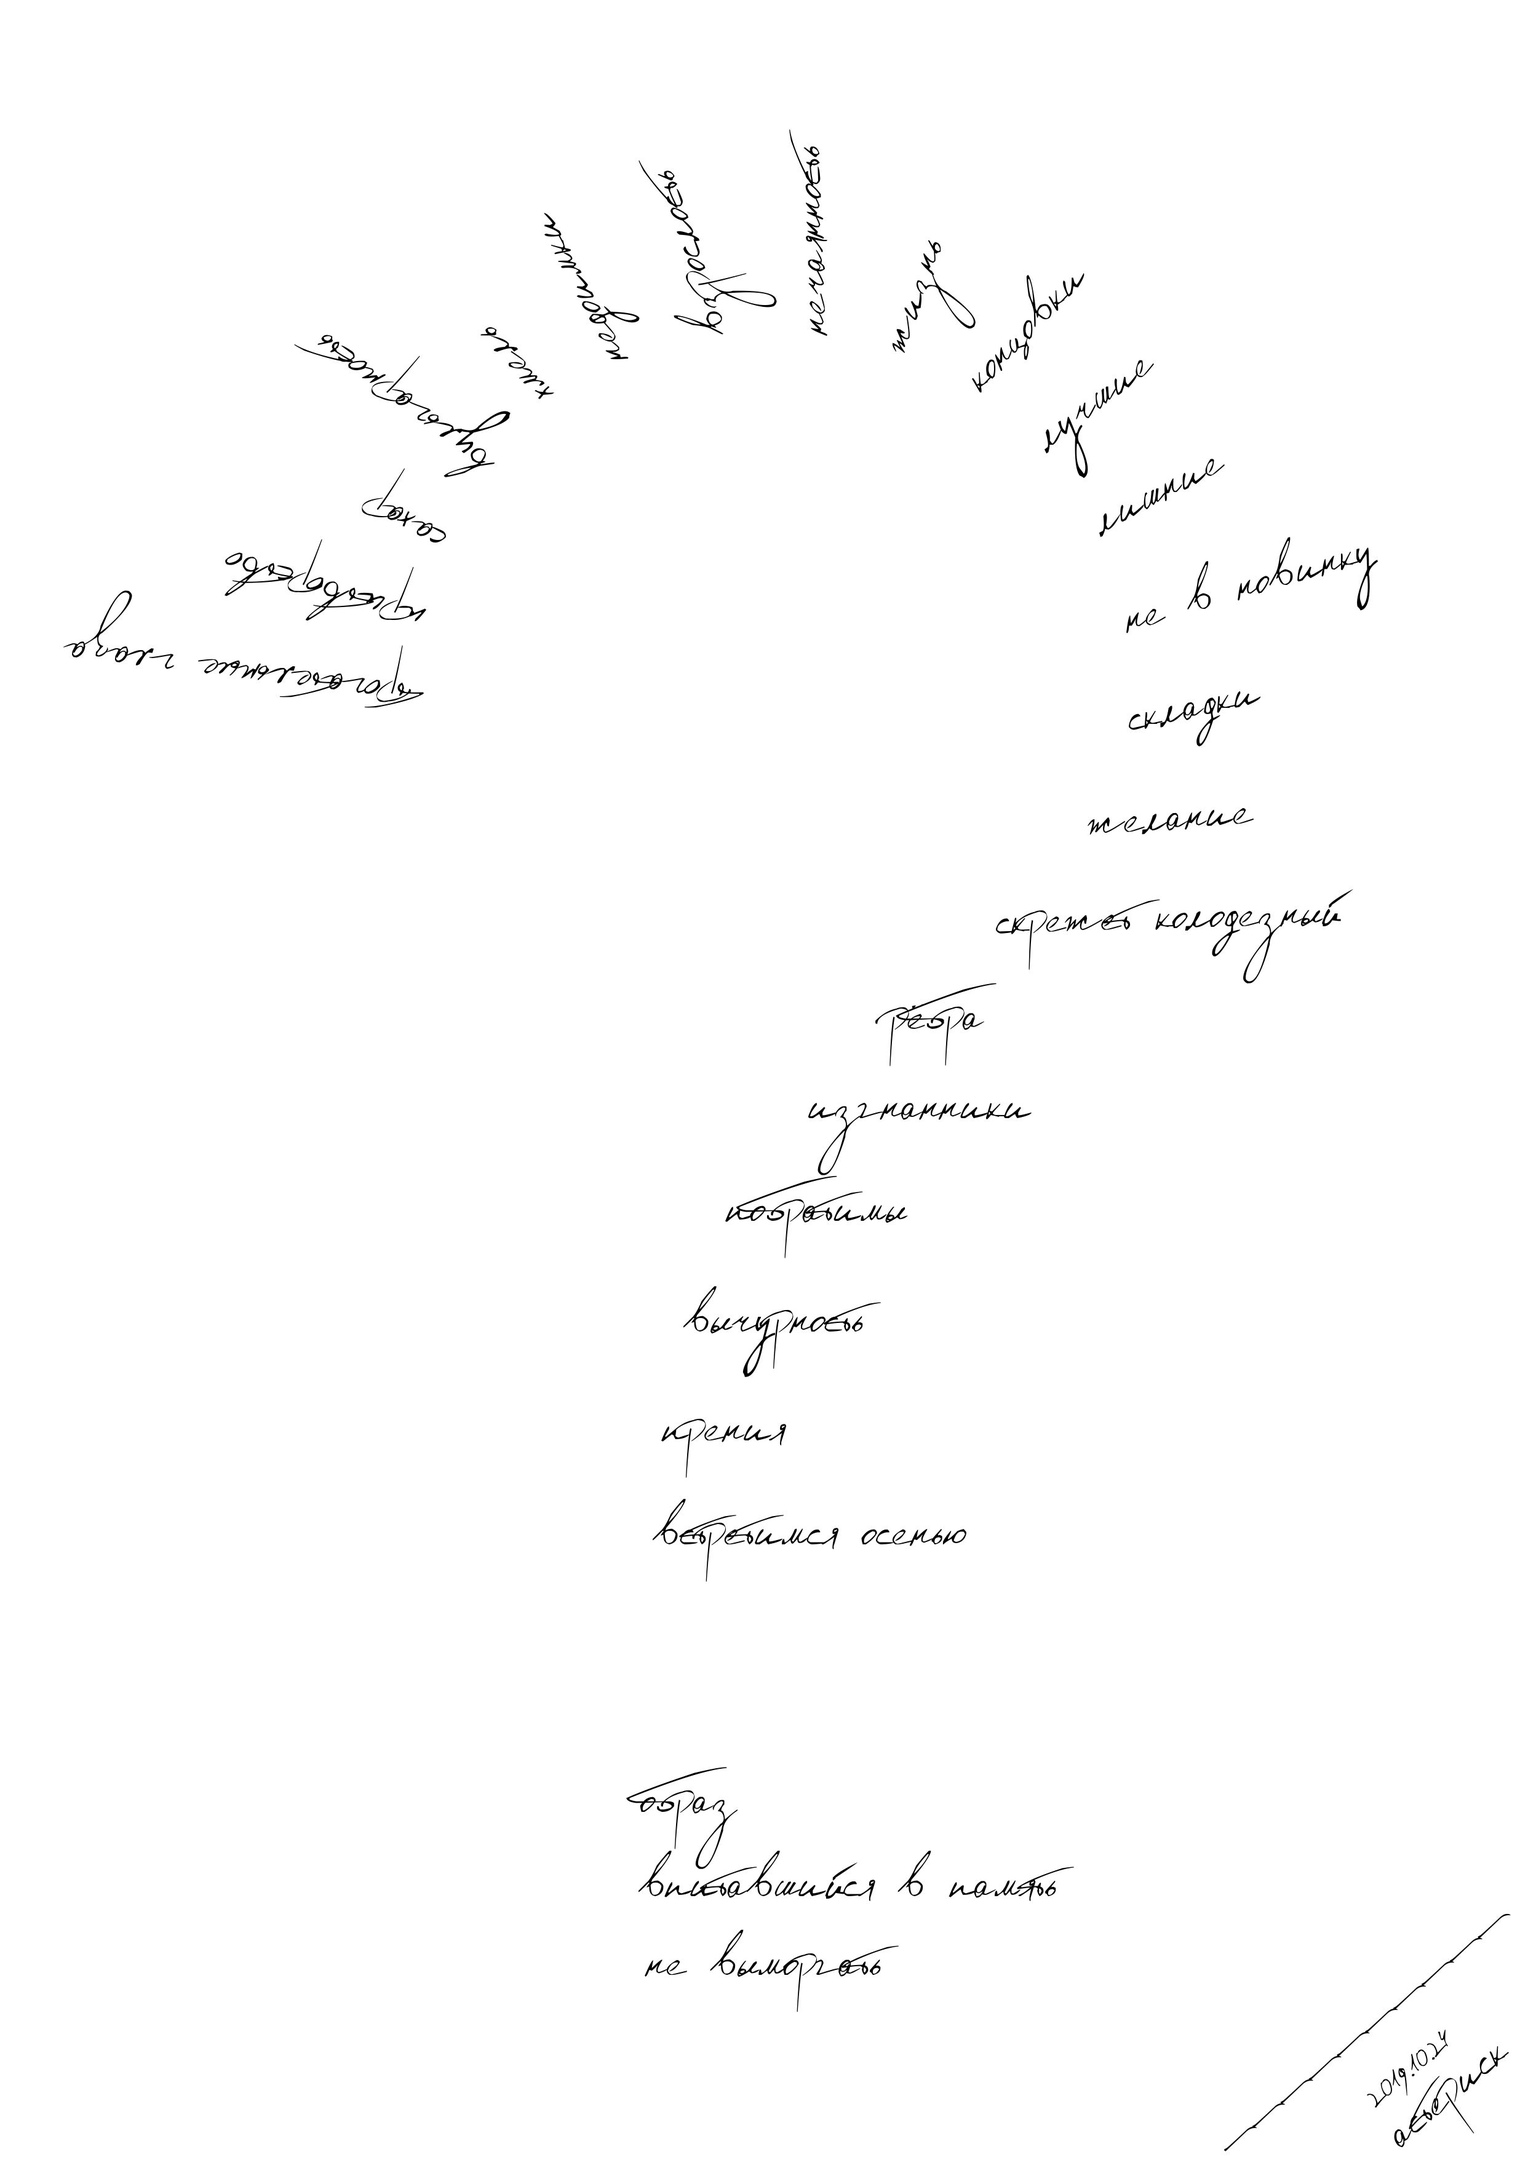 трогательные глаза
притворство
сахар
вульгарность
хмель
недоимки
взрослость
нечаянность
жизнь
концовки
лучшие
лишние
не в новинку
складки
желание
скрежет колодезный
рёбра
изгнанники
побратимы
вычурность
прения
встретимся осенью
образ
впитавшийся в память
не выморгать
2019.10.24
астериск